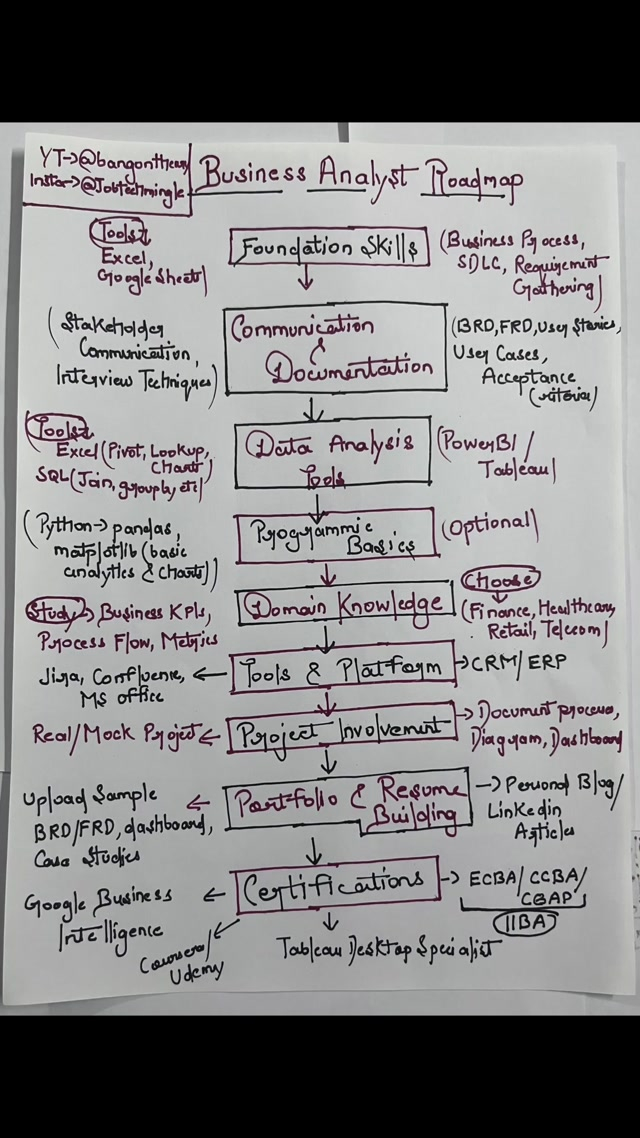 YT->@bangontheory
Insta->@Jobtechmingle
Business Analyst Roadmap
Tools
Excel,
Google Sheets
Foundation Skills
(Business Process,
SDLC, Requirement
Gathering)
(Stakeholder
Communication,
Interview Techniques)
Communication
&
Documentation
(BRD, FRD, User Stories,
User Cases,
Acceptance
Criteria)
Tools
Excel (Pivot, Lookup,
Chart)
SQL (Join, groupby etc)
Data Analysis
Tools
(PowerBI/
Tableau)
(Python-> pandas,
matplotlib (basic
analytics & Charts))
Programmic
Basics
(Optional)
Study -> Business KPIs,
Process Flow, Metrics
Domain Knowledge
Choose
(Finance, Healthcare,
Retail, Telecom)
Jira, Confluence,
MS office
<- Tools & Platform ->
CRM/ERP
Real/Mock Project <-
Project Involvement
-> Document process,
Diagram, Dashboard
Upload Sample <-
BRD/FRD, dashboard,
Case Studies
Portfolio & Resume
Building
-> Personal Blog/
Linkedin
Articles
Google Business <-
Intelligence
Certifications
-> ECBA/CCBA/
CBAP
IIBA
Coursera/
Udemy
Tableau Desktop Specialist